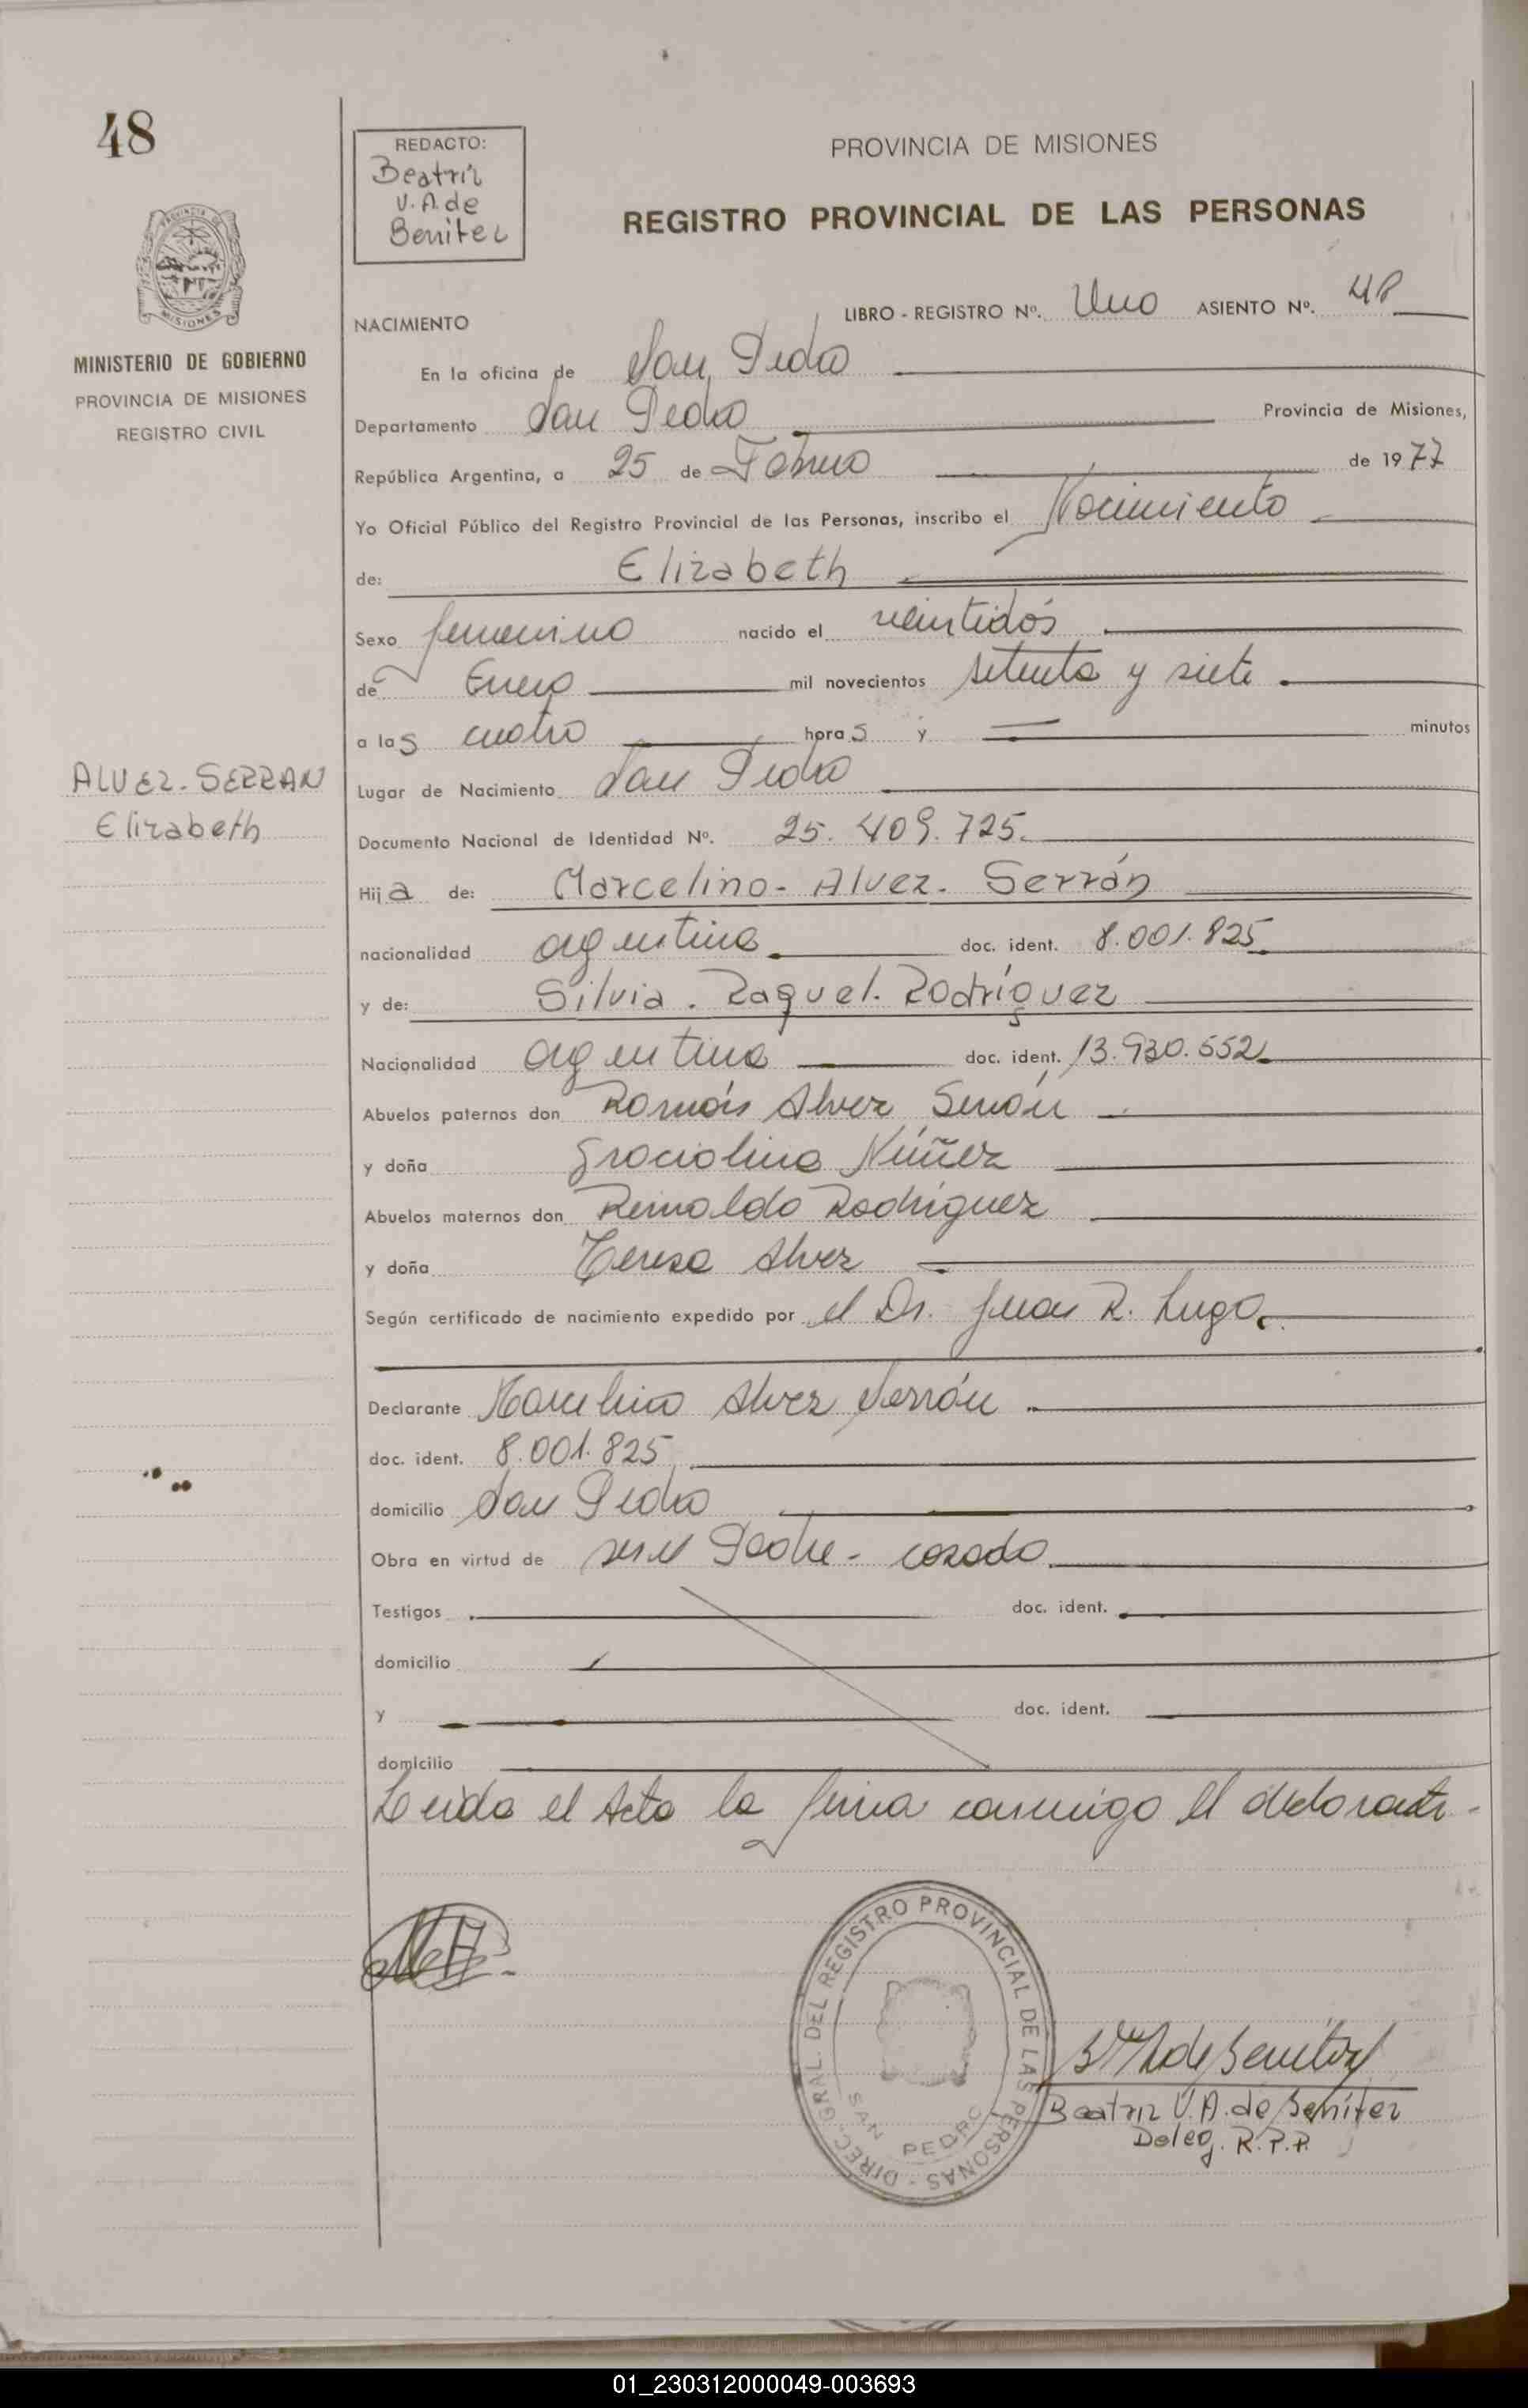 48
REDACTO:
Beatriz
V. A. de
Benitez
PROVINCIA DE MISIONES
REGISTRO PROVINCIAL DE LAS PERSONAS
MISIONES
MINISTERIO DE GOBIERNO
PROVINCIA DE MISIONES
REGISTRO CIVIL
NACIMIENTO
LIBRO - REGISTRO Nº. Uno ASIENTO Nº. 48
En la oficina de San Pedro
Departamento San Pedro Provincia de Misiones,
República Argentina, a 25 de Febrero de 1977
Yo Oficial Público del Registro Provincial de las Personas, inscribo el Nacimiento
de: Elizabeth
Sexo femenino nacido el veintidós
de Enero mil novecientos setenta y siete.
a las cuatro horas y = minutos
ALVEZ. SERRAN
Elizabeth
Lugar de Nacimiento San Pedro
Documento Nacional de Identidad Nº. 25.409.725.
Hija de: Marcelino- Alvez. Serrán
nacionalidad argentina doc. ident. 8.001.825
y de: Silvia. Raquel. Rodríguez
Nacionalidad argentina doc. ident. 13.930.552
Abuelos paternos don Román Alvez Serrán
y doña Graciolina Núñez
Abuelos maternos don Reinaldo Rodríguez
y doña Teresa Alvez
Según certificado de nacimiento expedido por el Dr. Juan R. Lugo.
Declarante Marcelino Alvez Serrán
doc. ident. 8.001.825
domicilio San Pedro
Obra en virtud de ser el Padre - casado
Testigos doc. ident.
domicilio
y doc. ident.
domicilio
Leída el Acta la firma conmigo el declarante.
DIREC. GRAL. DEL REGISTRO PROVINCIAL DE LAS PERSONAS -
SAN PEDRO
BVA de Benitez
Beatriz V.A. de Benitez
Deleg. R.P.P.
01_230312000049-003693